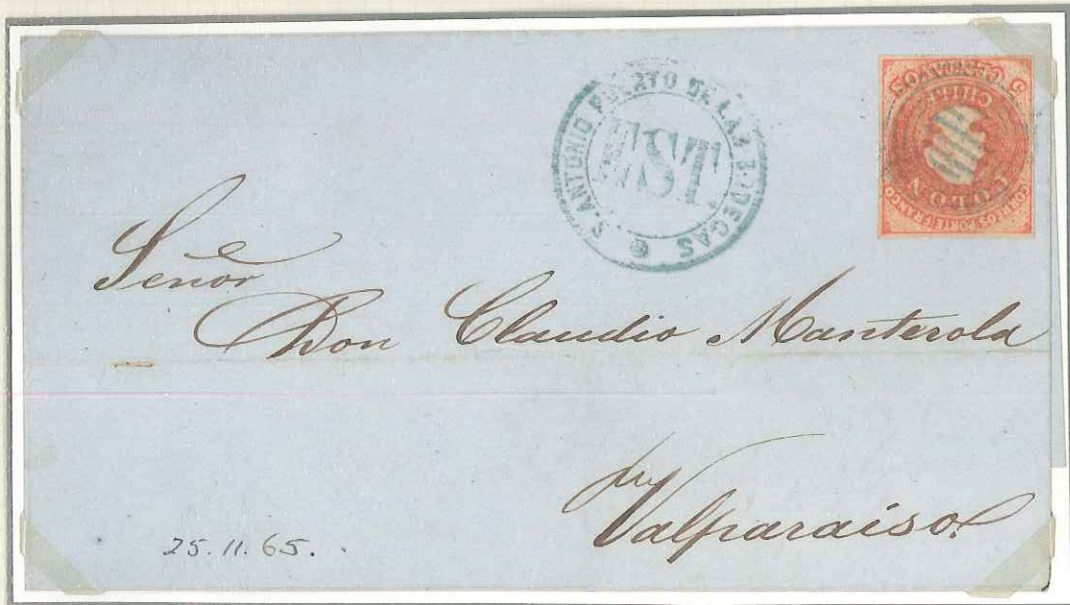 S. ANTONIO PUERTO DE LAS BODEGAS
EST.
5 CENTAVOS
CHILE
COLON
CORREOS PORTE FRANCO
Señor
Don Claudio Manterola
Valparaiso
25.11.65.